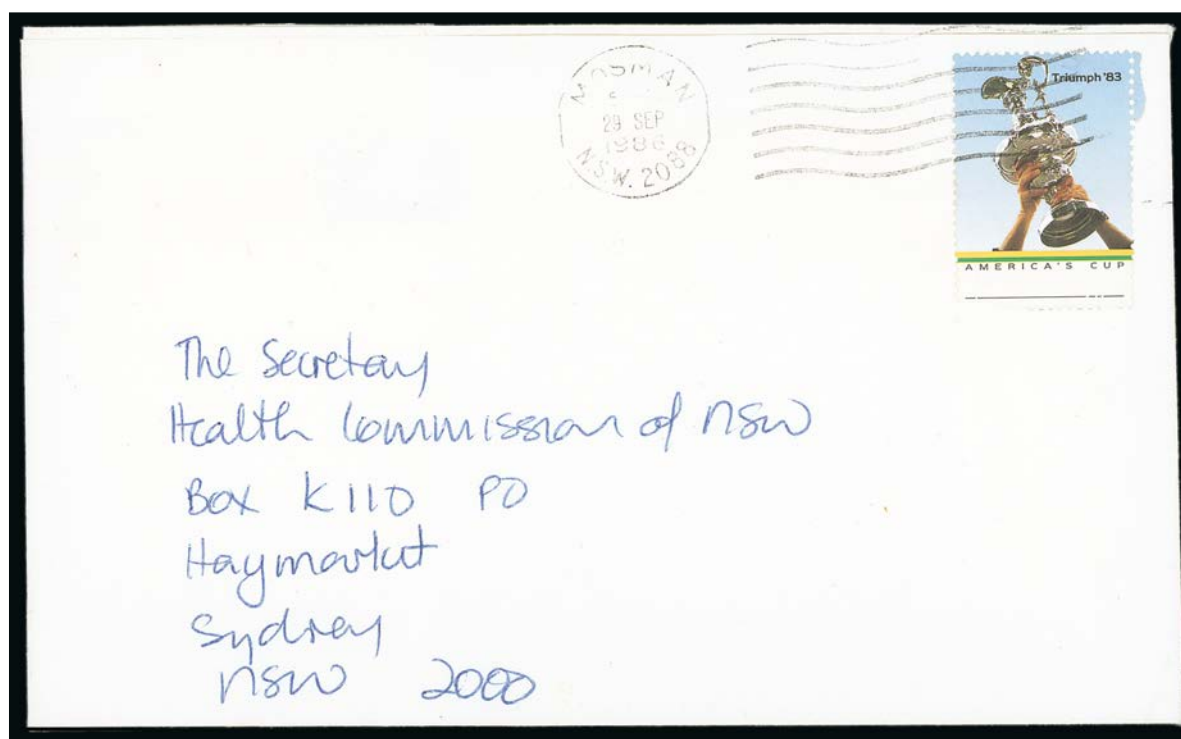 MOSMAN
29 SEP
1986
N.S.W. 2088
Triumph '83
AMERICA'S CUP
The Secretary
Health Commission of NSW
Box K110 PO
Haymarket
Sydney
NSW 2000